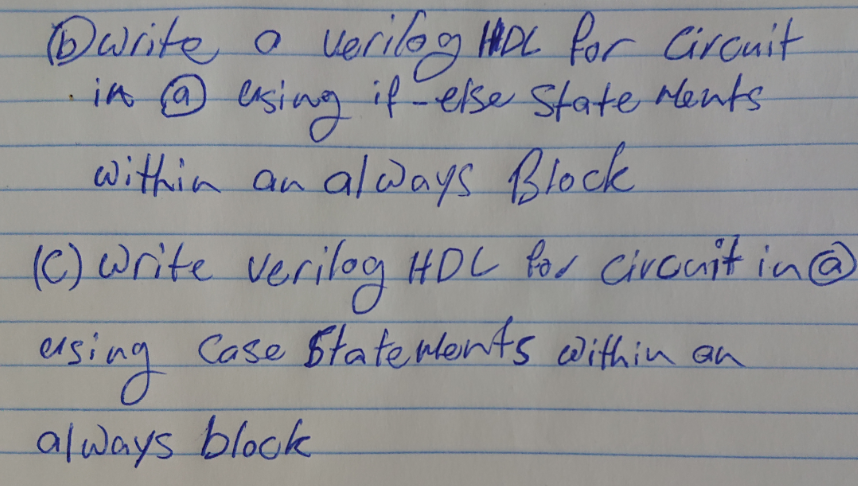 (b) write a verilog HDL for circuit
in (a) using if-else State Ments
within an always Block
(C) write verilog HDL for circuit in (a)
using Case StateMents within an
always block